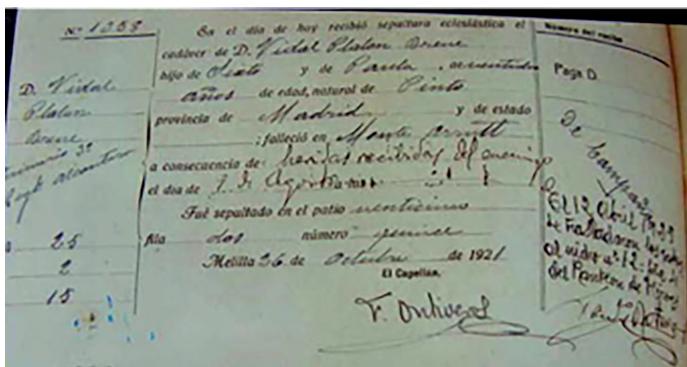 Nº 1358
D. Vidal
Platon
Brene
3º
Alcantara
25
2
15
En el día de hoy recibió sepultura eclesiástica el
cadáver de D. Vidal Platon Brene
hijo de Sixto y de Paula,
años de edad, natural de Pinto
provincia de Madrid y de estado
; falleció en Monte Arruit
a consecuencia de heridas recibidas del enemigo
el día de 9 de Agosto
Fué sepultado en el patio
fila dos número quince
Melilla 26 de Octubre de 1921
El Capellan,
F. Ontiveros
Número del recibo
Paga D.
de Campaña
El 12 Abril
se trasladaron los restos
al nicho nº 12
del Panteon de